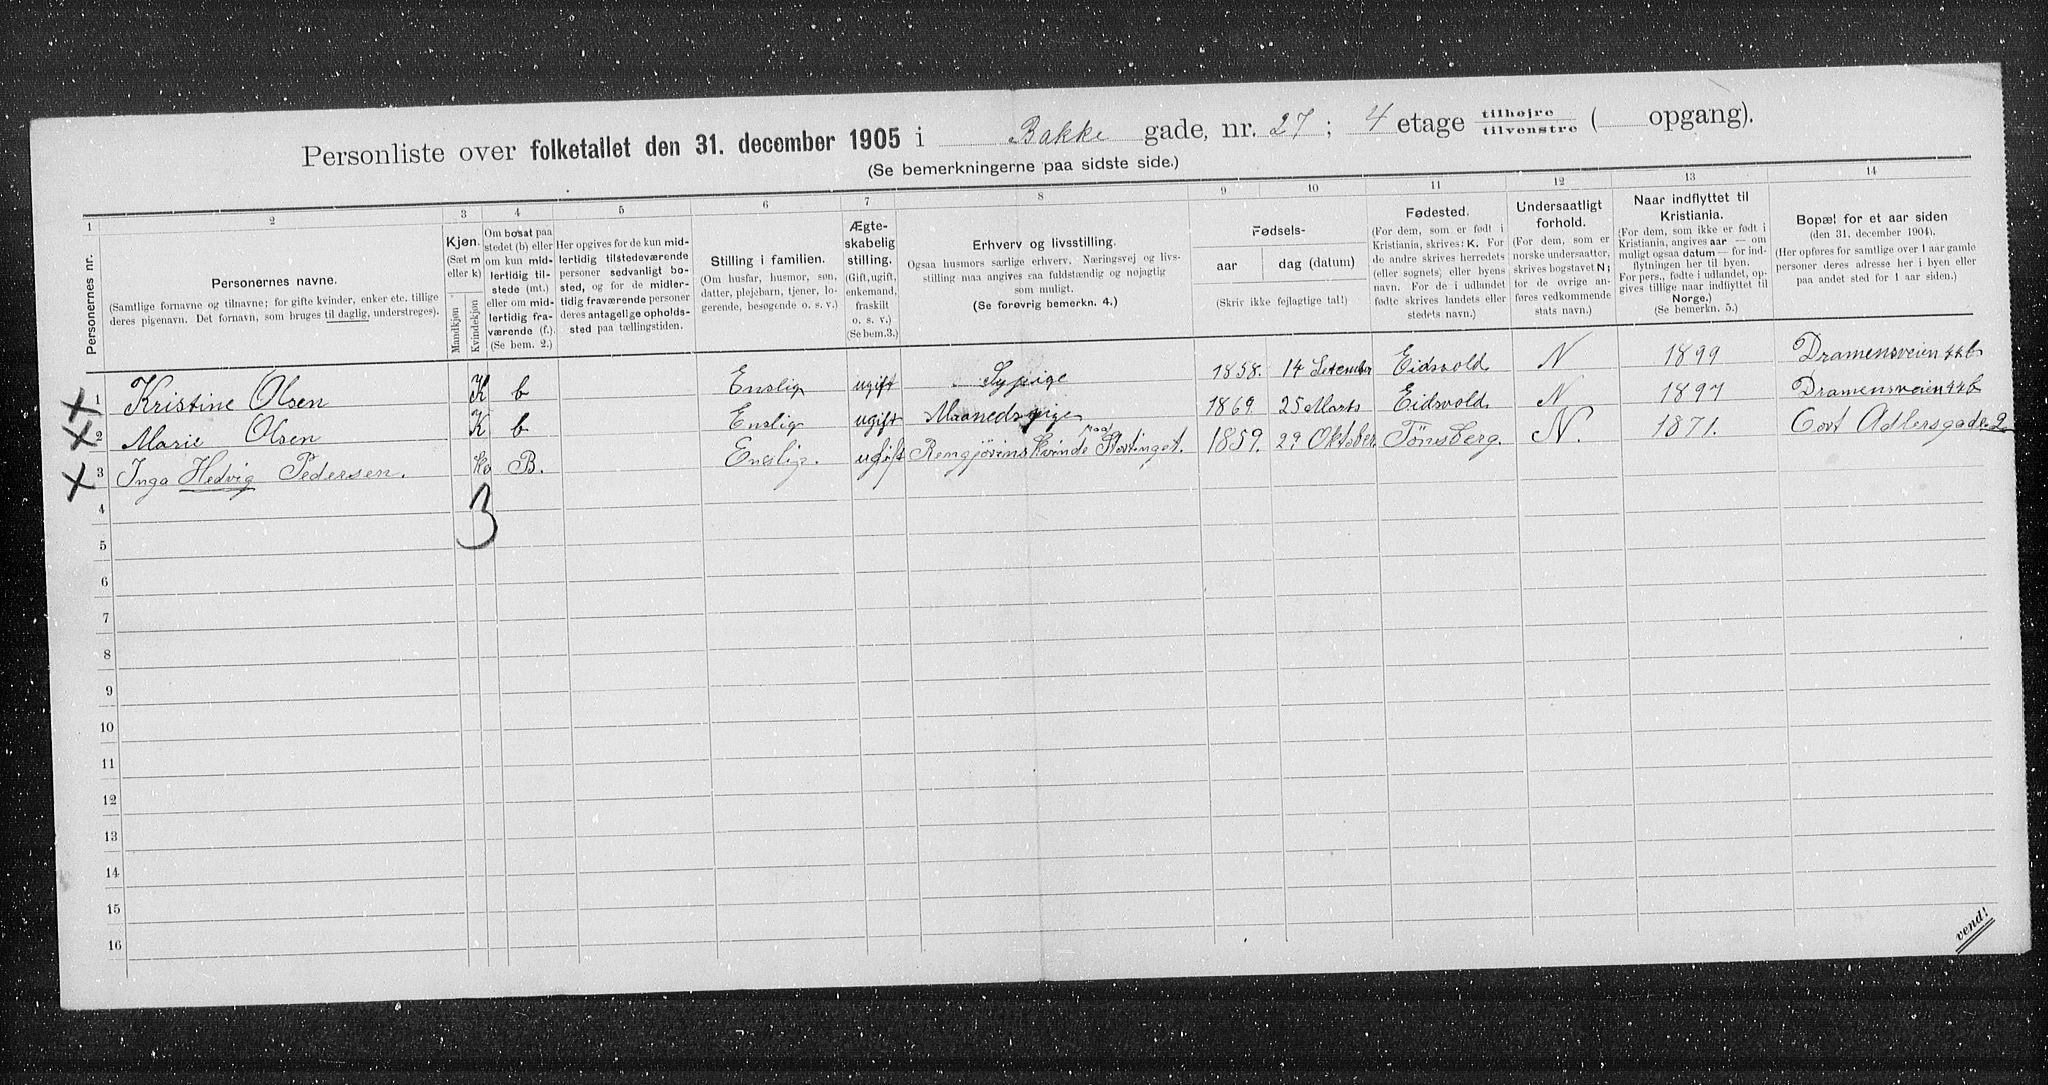 Personliste over folketallet den 31. december 1905 i Bakke gade, nr. 27; 4 etage tilhøjre tilvenstre ( opgang).
(Se bemerkningerne paa sidste side.)
1 2 3 4 5 6 7 8 9 10 11 12 13 14
Personernes nr.
Personernes navne.
(Samtlige fornavne og tilnavne; for gifte kvinder, enker etc. tillige
deres pigenavn. Det fornavn, som bruges til daglig, understreges).
Kjøn.
(Sæt m
eller k)
Mandkjøn
Kvindekjøn
Om bosat paa
stedet (b) eller
om kun mid-
lertidig til-
stede (mt.)
eller om mid-
lertidig fra-
værende (f.).
(Se bem. 2.)
Her opgives for de kun mid-
lertidig tilstedeværende
personer sedvanlig bo-
sted, og for de midler-
tidig fraværende personer
deres antagelige opholds-
sted paa tællingstiden.
Stilling i familien.
(Om husfar, husmor, søn,
datter, plejebarn, tjener, lo-
gerende, besøgende o. s. v.)
Ægte-
skabelig
stilling.
(Gift, ugift,
enkemand,
fraskilt
o. s. v.)
(Se bem.3.)
Erhverv og livsstilling.
Ogsaa husmors særlige erhverv. Næringsvej og livs-
stilling maa angives saa fuldstændig og nøjagtig
som muligt.
(Se forøvrig bemerkn. 4.)
Fødsels-
aar dag (datum)
(Skriv ikke fejlagtige tal!)
Fødested.
(For dem, som er født i
Kristiania, skrives: K. For
de andre skrives herredets
(eller sognets) eller byens
navn. For de i udlandet
fødte skrives landets eller
stedets navn.)
Undersaatligt
forhold.
(For dem, som er
norske undersaatter,
skrives bogstavet N;
for de øvrige an-
føres vedkommende
stats navn.)
Naar indflyttet til
Kristiania.
(For dem, som ikke er født i
Kristiania, angives aar — om
muligt ogsaa datum — for ind-
flytningen her til byen.
For pers., fødte i udlandet, op-
gives tillige naar indflyttet til
Norge.)
(Se bemerkn. 5.)
Bopæl for et aar siden
(den 31. december 1904).
(Her opføres for samtlige over 1 aar gamle
personer deres adresse her i byen eller
paa andet sted for 1 aar siden.)
X 1 Kristine Olsen K b Enslig ugift Sypige 1858. 14 Eidsvold N 1899 Dramensveien 44b
X 2 Marie Olsen K b Enslig ugift Maanedspige 1869 25 Marts Eidsvold N 1897 Dramensveien 44b
X 3 Inga Hedvig Pedersen. B. Enslig. ugift Rengjøringskvinde paa Stortinget. 1859. 29 Oktober. Tönsberg. N. 1871. Cort Adlersgade 2
3
4
5
6
7
8
9
10
11
12
13
14
15
16
vend!